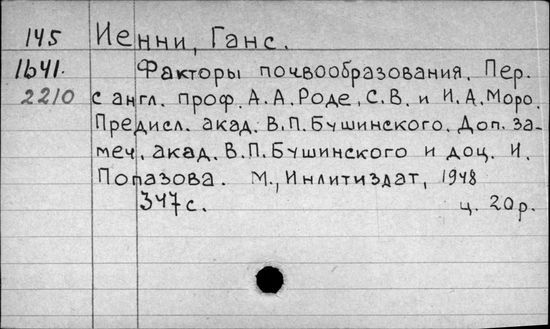 145 Иенни, Ганс.
1641. Факторы почвообразования. Пер.
2210 с англ. проф. А.А.Роде, С.В. и И.А.Моро.
Предисл. акад. В.П.Бушинского. Доп. за-
меч. акад. В.П.Бушинского и доц. И.
Попазова. М., Инлитиздат, 1948
347 с. ц. 20 р.